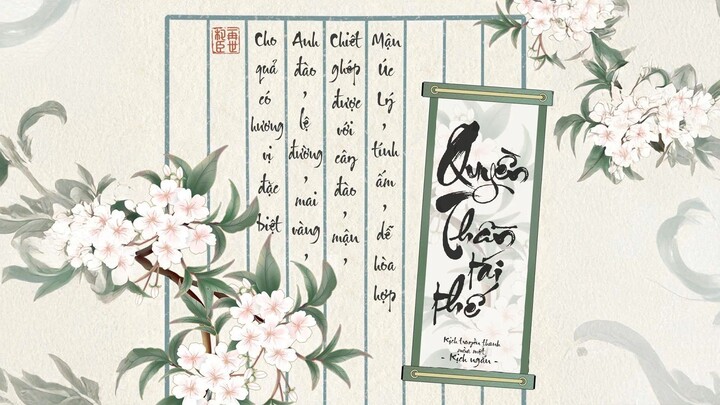 Quyền
Thần
tái
thế
Kịch truyền thanh
mùa một
- Kịch ngắn -
Mận Úc Lý, tính ấm, dễ hòa hợp
Chiết ghép được với cây đào, mận,
Anh đào, lệ đường, mai vàng,
Cho quả có hương vị đặc biệt